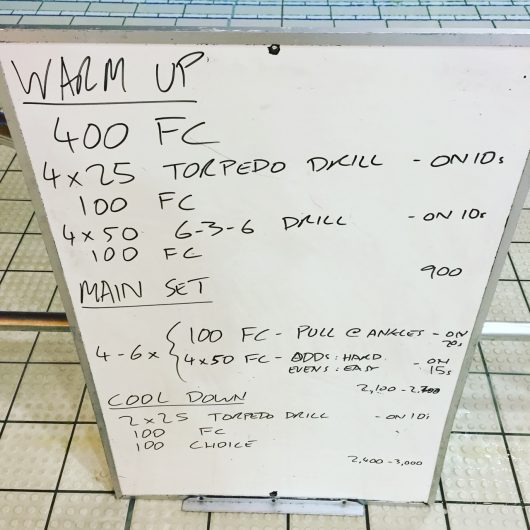 WARM UP
400 FC
4 x 25 TORPEDO DRILL - ON 10s
100 FC
4 x 50 6-3-6 DRILL - ON 10s
100 FC
900
MAIN SET
4 - 6 x { 100 FC - PULL @ ANKLES - ON 20s
4 x 50 FC - ODDS: HARD EVENS: EASY - ON 15s
2,100 - 2,700
COOL DOWN
2 x 25 TORPEDO DRILL - ON 10s
100 FC
100 CHOICE
2,400 - 3,000